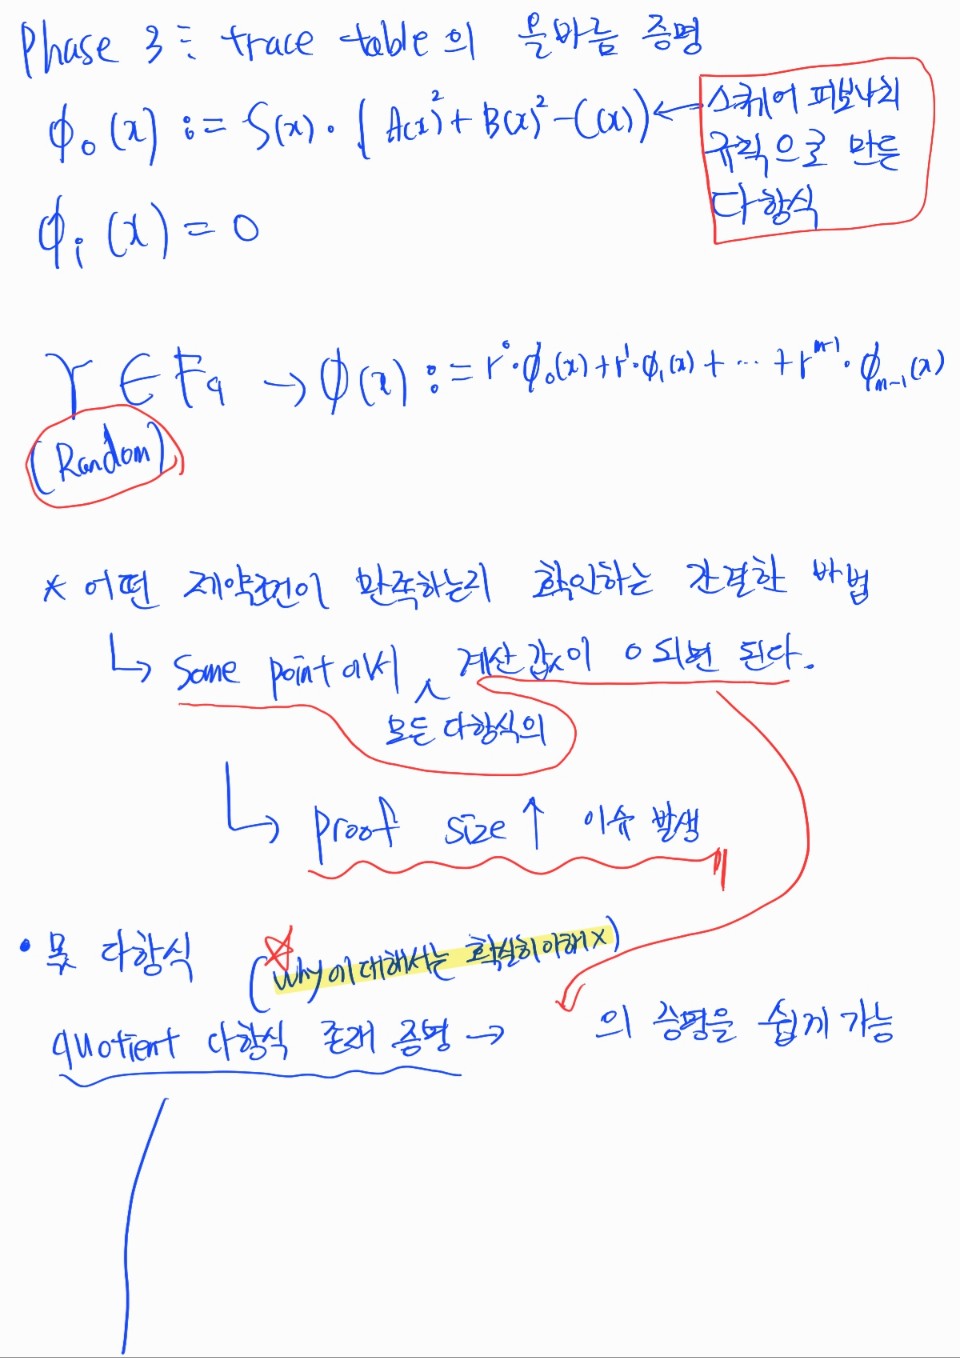 Phase 3 : trace table의 올바름 증명
ϕ₀(x) := S(x)·(A(x)²+B(x)²-C(x)) ← 스퀘어 피보나치
규칙으로 만든
다항식
ϕᵢ(x) = 0
r ∈ F_q → ϕ(x) := r⁰·ϕ₀(x)+r¹·ϕ₁(x)+ ··· +r^{m-1}·ϕ_{m-1}(x)
(Random)
* 어떤 제약조건이 만족하는지 확인하는 간결한 방법
↳ Some point에서 ^ 계산 값이 0 되면 된다.
모든 다항식의
↳ proof size ↑ 이슈 발생
• 몫 다항식 (☆ Why에 대해서는 확실히 이해x)
quotient 다항식 존재 증명 → 의 증명을 쉽게 가능